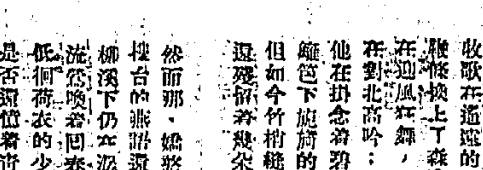 收歌在遙遠的
鞭條換上了森
在迎風在舞，
在對北高吟：
他在掛念着碧
籬笆下旖旎的
但如今竹梢縫
還殘留着幾朵
然而那、嬌
樓台的燕語還
柳溪下仍在泥
流鶯喚着回春
低徊荷衣的少
是否還憶着